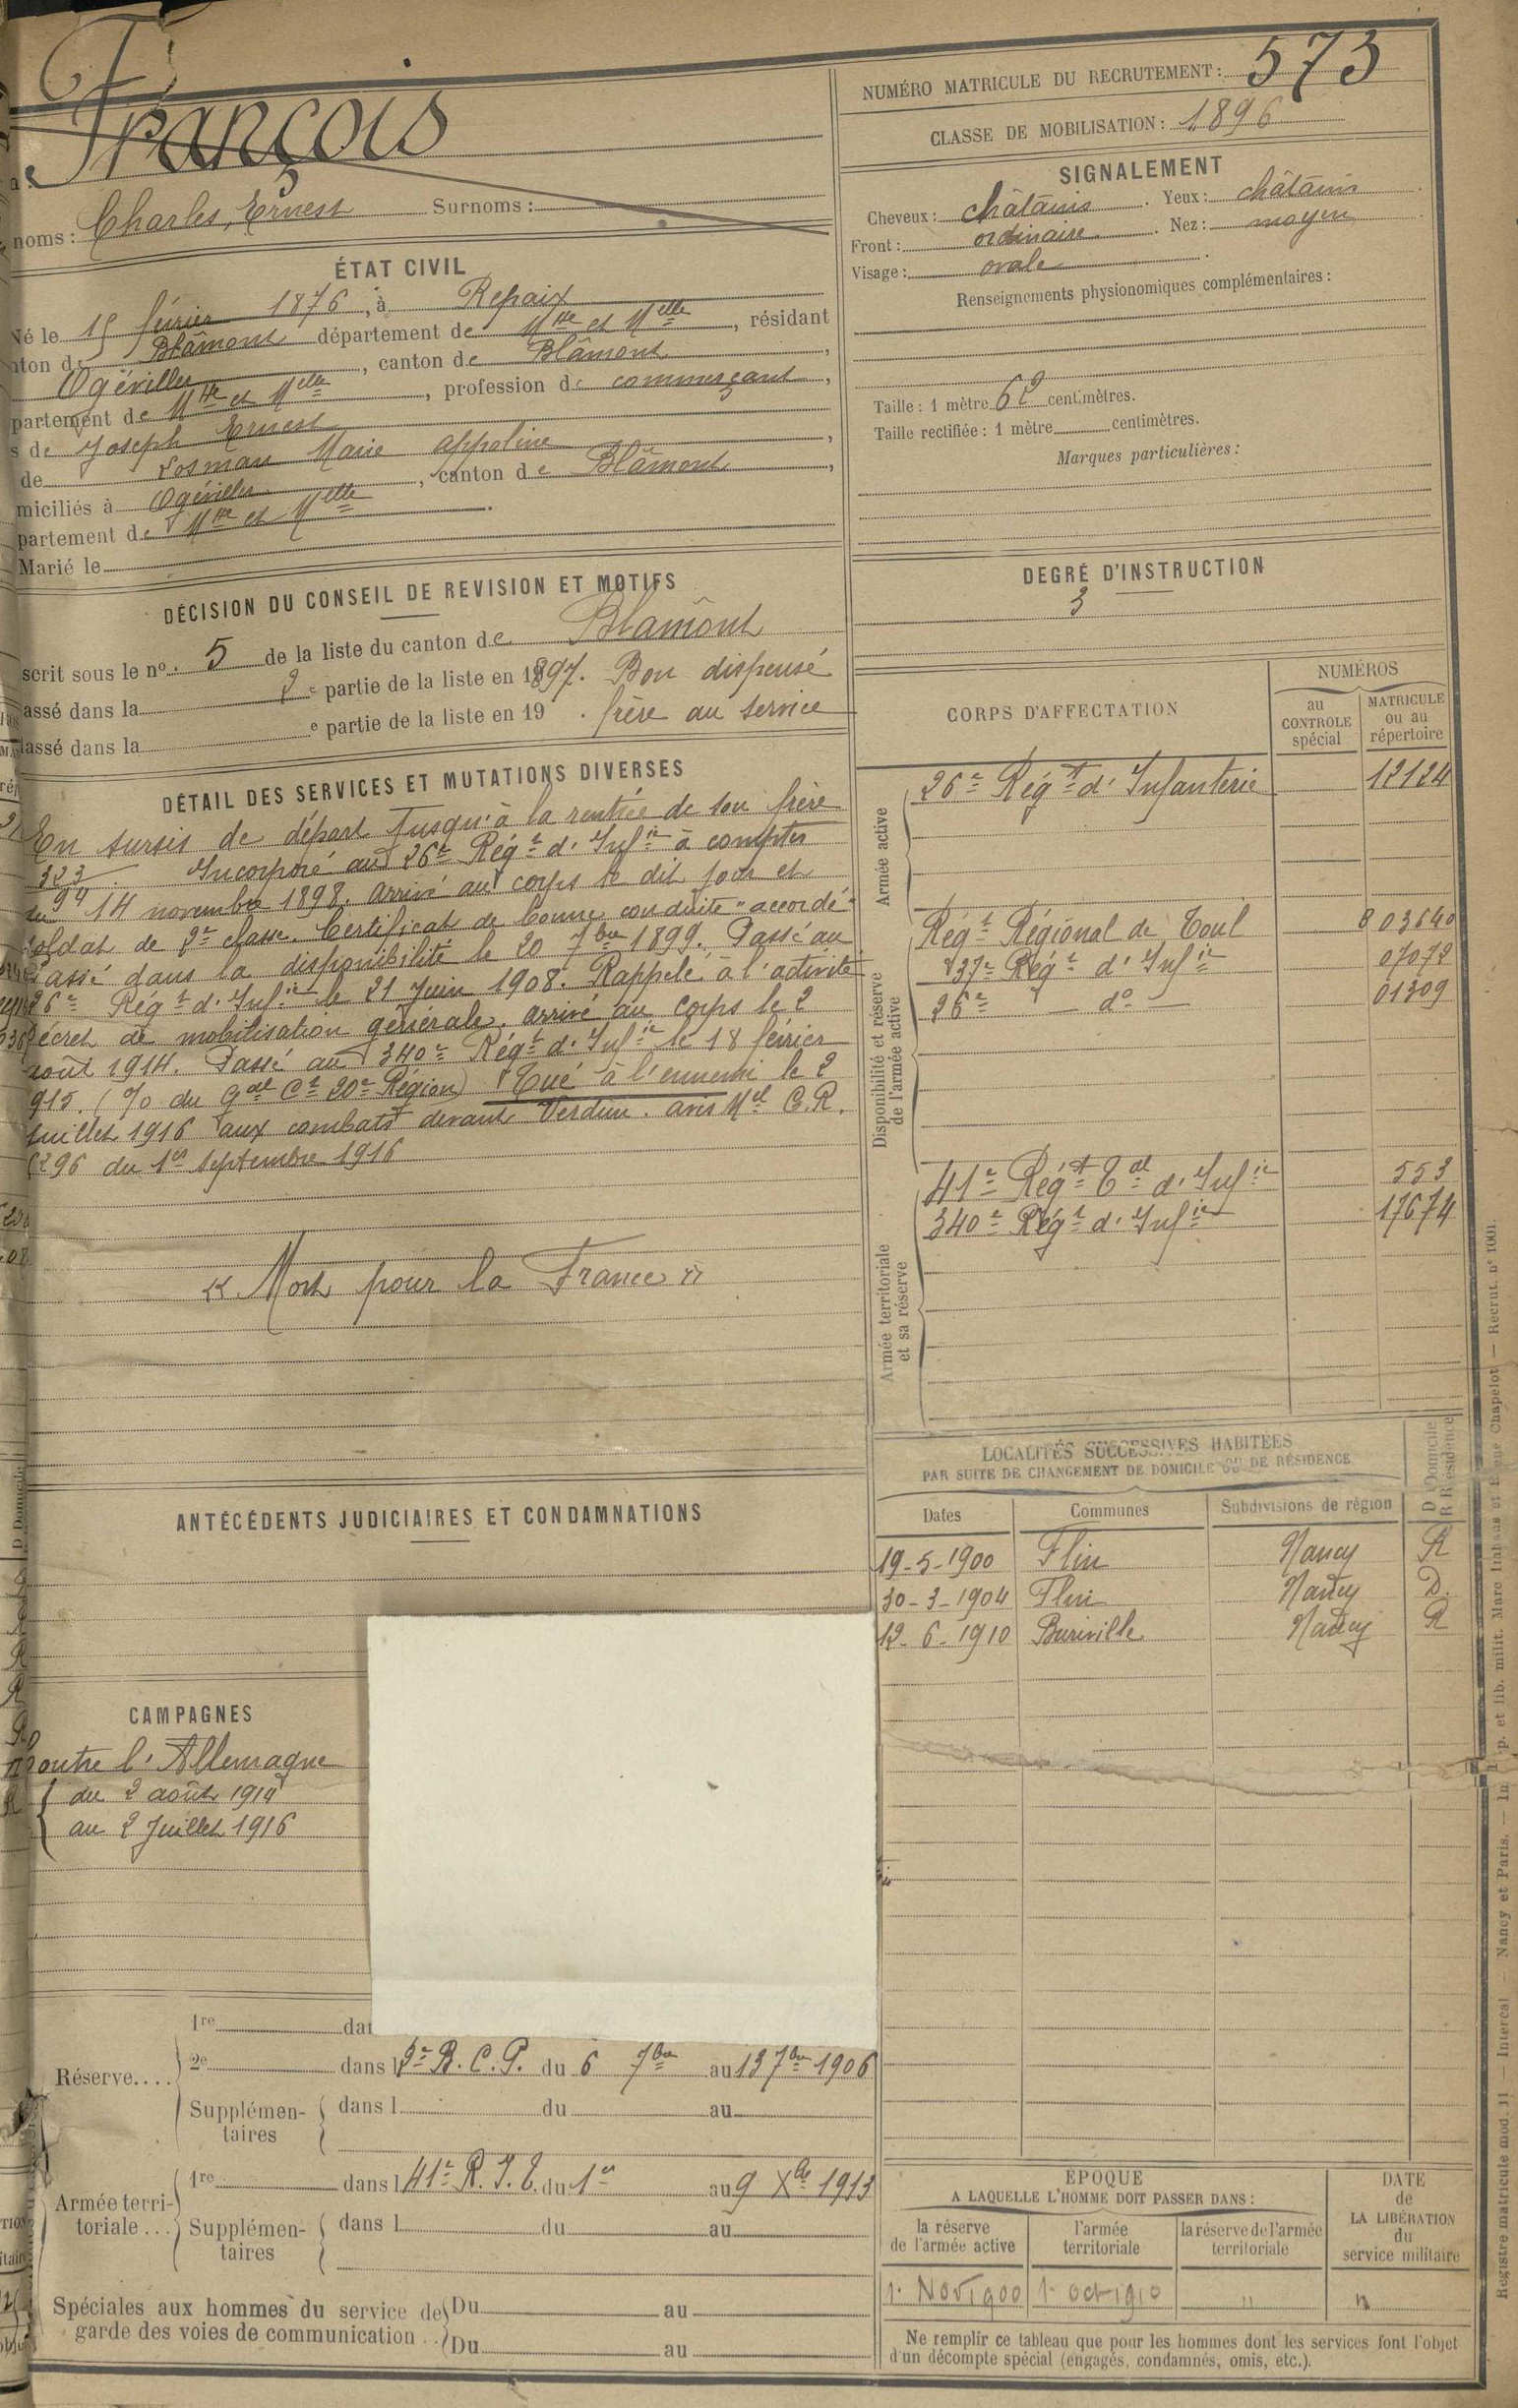 François
noms : Charles, Ernest Surnoms :
ÉTAT CIVIL
Né le 15 février 1876, à Repaix
nton de Blâmont département de Mthe et Mlle, résidant
Ogéviller, canton de Blâmont,
partement de Mthe et Mlle, profession de commerçant,
s de Joseph Ernest
de Losman Marie appoline,
miciliés à Ogéviller, canton de Blâmont,
partement de Mthe et Mlle.
Marié le
DÉCISION DU CONSEIL DE REVISION ET MOTIFS
scrit sous le nº 5 de la liste du canton de Blâmont
assé dans la 2e partie de la liste en 1897. Bon dispensé
lassé dans la e partie de la liste en 19 . frère au service
DÉTAIL DES SERVICES ET MUTATIONS DIVERSES
En sursis de départ jusqu'à la rentrée de son frère
323 Incorporé au 26e Régt d'Infie à compter
du 14 novembre 1898, arrivé au corps le dit jour et
soldat de 2e classe. Certificat de bonne conduite "accordé"
Passé dans la disponibilité le 20 7bre 1899. Passé au
26e Régt d'Infie le 21 Juin 1908. Rappelé à l'activité
Décret de mobilisation générale, arrivé au corps le 2
août 1914. Passé au 340e Régt d'Infie le 18 février
915. (% du Gal Ct 20e Région) Tué à l'ennemi le 2
Juillet 1916 aux combats devant Verdun. avis Mel C.R.
296 du 1er septembre 1916
« Mort pour la France »
ANTÉCÉDENTS JUDICIAIRES ET CONDAMNATIONS
CAMPAGNES
Contre l'Allemagne
du 2 août 1914
au 2 Juillet 1916
1re dan
Réserve.... 2e dans l 2e B.C.P. du 6 7bre au 13 7bre 1906
Supplémentaires dans l du au
Armée territoriale... 1re dans l 41e R.I.T. du 1er au 9 Xbre 1913
Supplémentaires dans l du au
Spéciales aux hommes du service de garde des voies de communication .. Du au
Du au
NUMÉRO MATRICULE DU RECRUTEMENT : 573
CLASSE DE MOBILISATION : 1896
SIGNALEMENT
Cheveux : châtains. Yeux : châtains.
Front : ordinaire. Nez : moyen.
Visage : ovale.
Renseignements physionomiques complémentaires :
Taille : 1 mètre 62 centimètres.
Taille rectifiée : 1 mètre centimètres.
Marques particulières :
DEGRÉ D'INSTRUCTION
3
CORPS D'AFFECTATION
NUMÉROS
au CONTROLE spécial
MATRICULE ou au répertoire
Armée active
26e Régt d'Infanterie 12124
Disponibilité et réserve de l'armée active
Régt Régional de Toul 803640
37e Régt d'Infie 07072
26e — do — 01309
Armée territoriale et sa réserve
41e Régt Tal d'Infie 553
340e Régt d'Infie 17674
LOCALITÉS SUCCESSIVES HABITÉES
PAR SUITE DE CHANGEMENT DE DOMICILE OU DE RÉSIDENCE
Dates Communes Subdivisions de région D Domicile R Résidence
19-5-1900 Flin Nancy R
30-3-1904 Flin Nancy D.
12-6-1910 Buriville Nancy R
ÉPOQUE
A LAQUELLE L'HOMME DOIT PASSER DANS :
la réserve de l'armée active
l'armée territoriale
la réserve de l'armée territoriale
DATE de LA LIBÉRATION du service militaire
1. Nov 1900 1. oct 1910 " "
Ne remplir ce tableau que pour les hommes dont les services font l'objet
d'un décompte spécial (engagés, condamnés, omis, etc.).